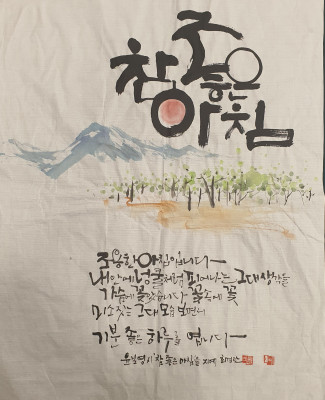 참 좋은
아침
조용한 아침입니다
내 안에 넝쿨처럼 피어나는 그대 생각들
가슴에 꽃 꽂습니다 꽃 속에 꽃
미소짓는 그대 모습 보면서
기분 좋은 하루를 엽니다
윤보영 시 참 좋은 아침을